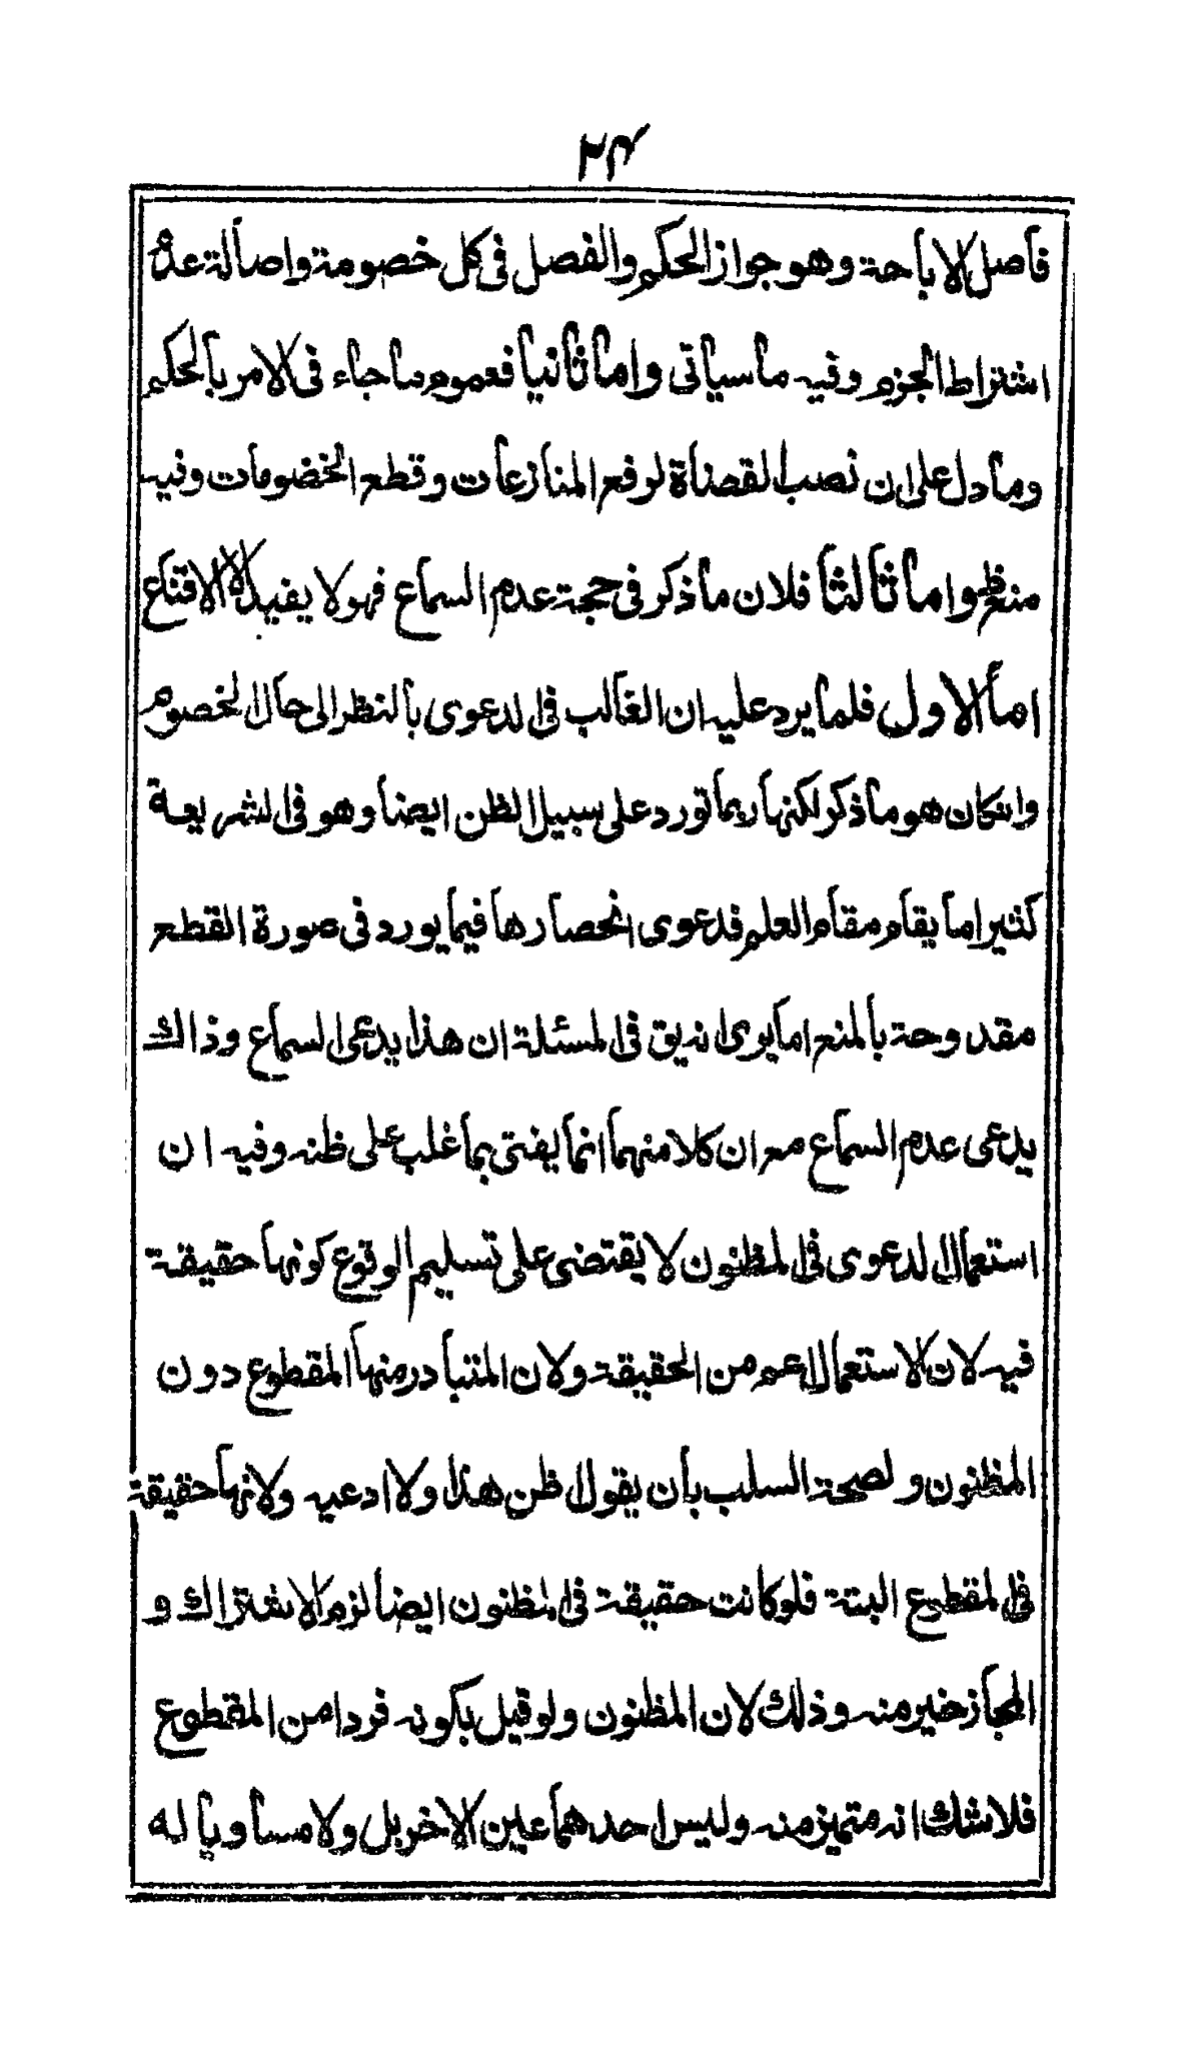 ٢٤
فاصل الاباحة وهو جواز الحكم والفصل في كل خصومة واصالة عدم
اشتراط الجزم وفيه ما سياتي واما ثانيا فعموم ما جاء في الامر بالحكم
وما دل على ان نصب القضاة لرفع المنازعات وقطع الخضومات وفيه
منع ظ واما ثالثا فلان ما ذكر في حجة عدم السماع فهو لا يفيد الا الاقناع
اما الاول فلما يرد عليه ان الغالب في الدعوى بالنظر الى حال الخصوم
وانكان هو ما ذكر لكنها ربما تورد على سبيل الظن ايضا وهو في الشريعة
كثيرا ما يقام مقام العلم فدعوى انحصارها فيما يورد في صورة القطع
مقدوحة بالمنع اما يرى انه يق في المسئلة ان هذا يدعى السماع وذاك
يدعى عدم السماع مع ان كلا منهما انما يفتى بما غلب على ظنه وفيه ان
استعمال الدعوى في المظنون لا يقتضى على تسليم الوقوع كونها حقيقة
فيه لان الاستعمال اعم من الحقيقة ولان المتبادر منها المقطوع دون
المظنون ولصحة السلب بان يقول اظن هذا ولا ادعيه ولانها حقيقة
في المقطوع البتة فلو كانت حقيقة في المظنون ايضا لزم الاشتراك و
المجاز خير منه وذلك لان المظنون ولو قيل بكونه فردا من المقطوع
فلا شك انه متميز منه وليس احدهما عين الاخر بل ولا مساويا له